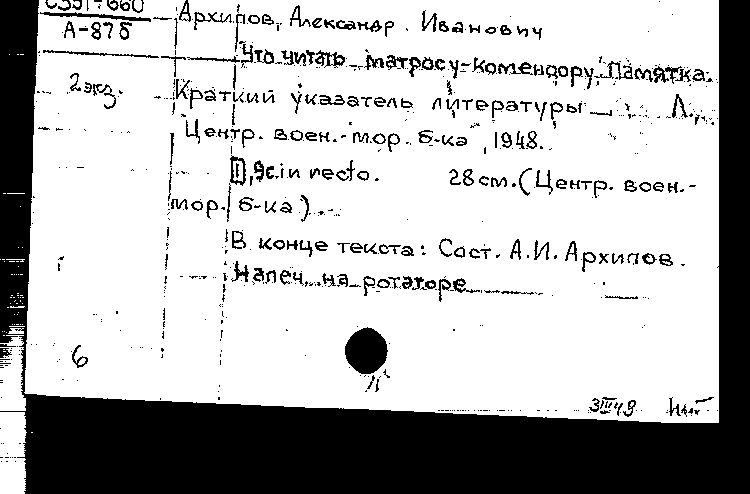 А-875
Архипов, Александр Иванович
Что читать матросу-комендору. Памятка.
2 экз.
Краткий указатель литературы Л.,
"Центр. воен.-мор. б-ка", 1948.
[1], 9с. in recto. 28 см. (Центр. воен.-
мор. б-ка).
В конце текста: Сост. А.И. Архипов.
Напеч. на ротаторе
6
3III49